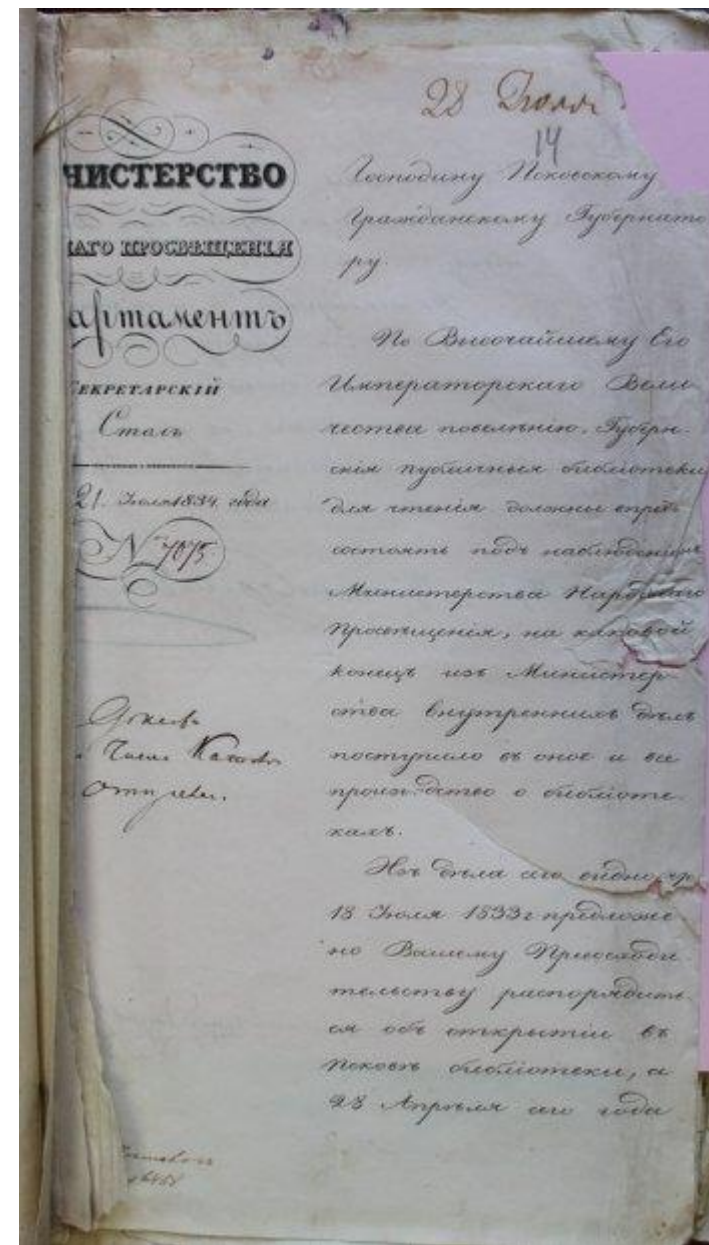 28 Іюля
14
НИСТЕРСТВО
НАГО ПРОСВѢЩЕНІЯ
артаментъ
СЕКРЕТАРСКІЙ
Столъ
21. Іюля 1834. года
№ 7075
Господину Псковскому
Гражданскому Губернато
ру.
По Высочайшему Его
Императорскаго Вели
чества повелѣнію, Губерн-
скія публичныя библіотеки
для чтенія должны впредь
состоять подъ наблюденіемъ
Министерства Народнаго
Просвѣщенія, на каковой
конецъ изъ Министер-
ства Внутреннихъ Дѣлъ
поступило въ оное и все
производство о библіоте-
кахъ.
Изъ дѣла сего видно, что
18 Іюля 1833 г предложе
но Вашему Превосходи-
тельству распорядить-
ся объ открытіи въ
Псковѣ библіотеки, а
28 Апрѣля сего года